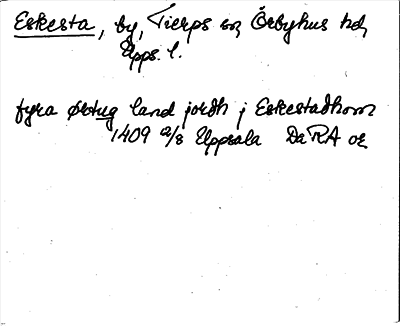 Eskesta, by, Tierps sn Örbyhus hd,
Upps. l.
fyra ørtug land jordh j Eskestadhom
1409 2/8 Uppsala DaRA or